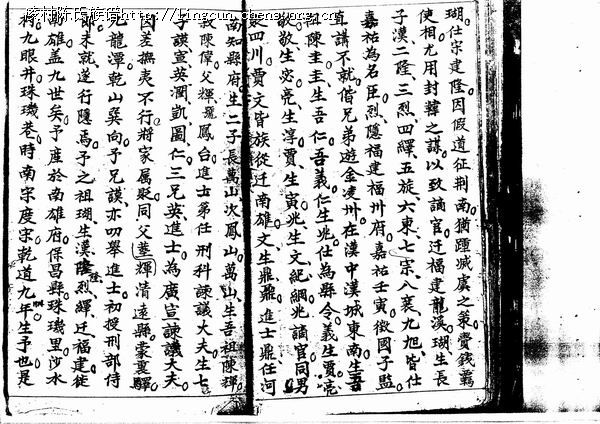 凌村陈氏族谱http://lingcun.chens.org.cn
瑚仕宋建隆因假道征荆南猶踵滅虞之策賣錢鵞
使相尤用封韓之謀以致謫官迁福建龍溪瑚生長
子漢二隆三烈四繹五旋六東七宗八襄九旭皆仕
嘉祐為名臣烈隱福建福州府嘉祐壬寅徵國子監
直講不就偕兄弟遊金凌州在漢中漢城東南生吾
祖陳圭圭生吾仁吾義仁生兆仕為縣令義生賈亮
敬敬生宓亮生淳賈生寅兆生文紀綱兆謫官同男
四川賈文皆族從迁南雄文生鼎鼎進士鼎任河
南知縣府生二子長萬山次鳳山萬山生吾祖陳輝
叔陳偉父輝鳳台進士第任刑科諫議大夫生七
謨宣英潤凱圖仁三兄英進士為廣宣諫議大夫
差撫夷不行將家属疑同父輝清遠縣蒙裏驛
龍潭乾山巽向予兄謨亦四舉進士初授刑部侍
未就遂行隱焉予之祖瑚生漢隆烈繹迁福建徙
雄盖九世矣予產於南雄府保昌縣珠璣里沙水
村九眼井珠璣巷時南宋度宋乾道九年生予也是